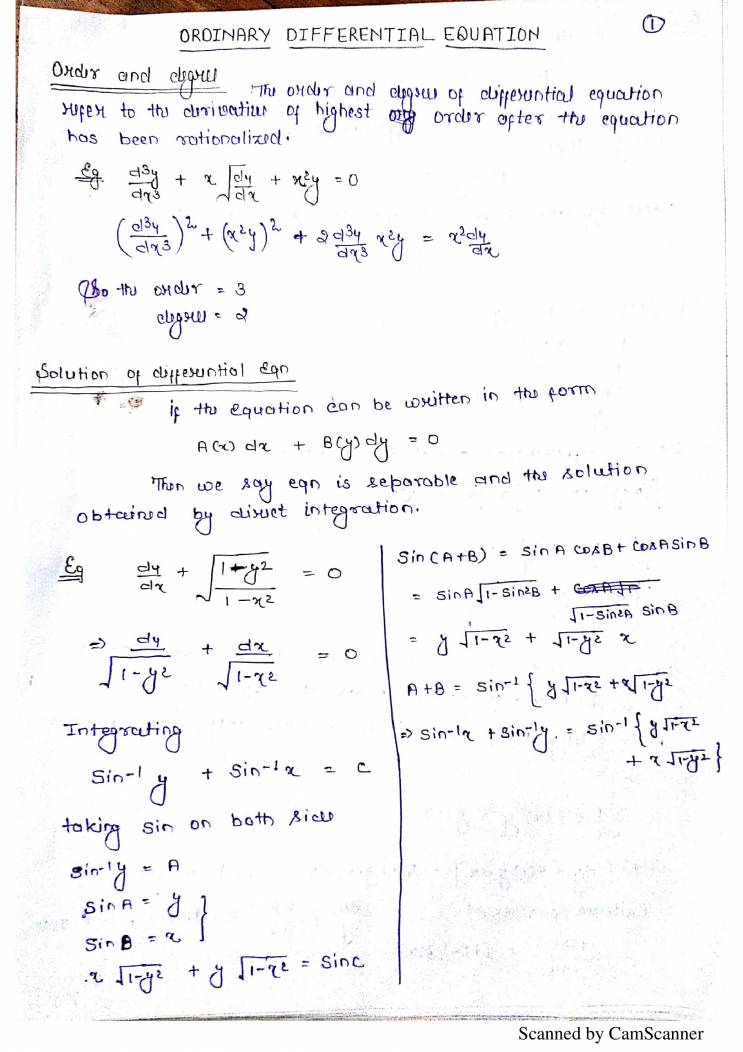 ①
ORDINARY DIFFERENTIAL EQUATION
Order and degree
The order and degree of differential equation
refer to the derivative of highest order after the equation
has been rationalized.
Eg d³y/dx³ + x √(dy/dx) + x²y = 0
(d³y/dx³)² + (x²y)² + 2 d³y/dx³ x²y = x² dy/dx
So the order = 3
degree = 2
Solution of differential Eqn
if the equation can be written in the form
A(x) dx + B(y) dy = 0
Then we say eqn is separable and the solution
obtained by direct integration.
Eg dy/dx + √((1-y²)/(1-x²)) = 0
⇒ dy/√(1-y²) + dx/√(1-x²) = 0
Integrating
Sin⁻¹ y + Sin⁻¹x = c
taking sin on both side
sin⁻¹y = A
SinA = y }
Sin B = x }
x √(1-y²) + y √(1-x²) = Sinc
Sin(A+B) = SinA CosB + CosA SinB
= SinA √(1-Sin²B) + √(1-Sin²A) SinB
= y √(1-x²) + √(1-y²) x
A+B = Sin⁻¹ { y √(1-x²) + x√(1-y²)
⇒ Sin⁻¹x + Sin⁻¹y = Sin⁻¹ { y √(1-x²)
+ x √(1-y²) }
Scanned by CamScanner